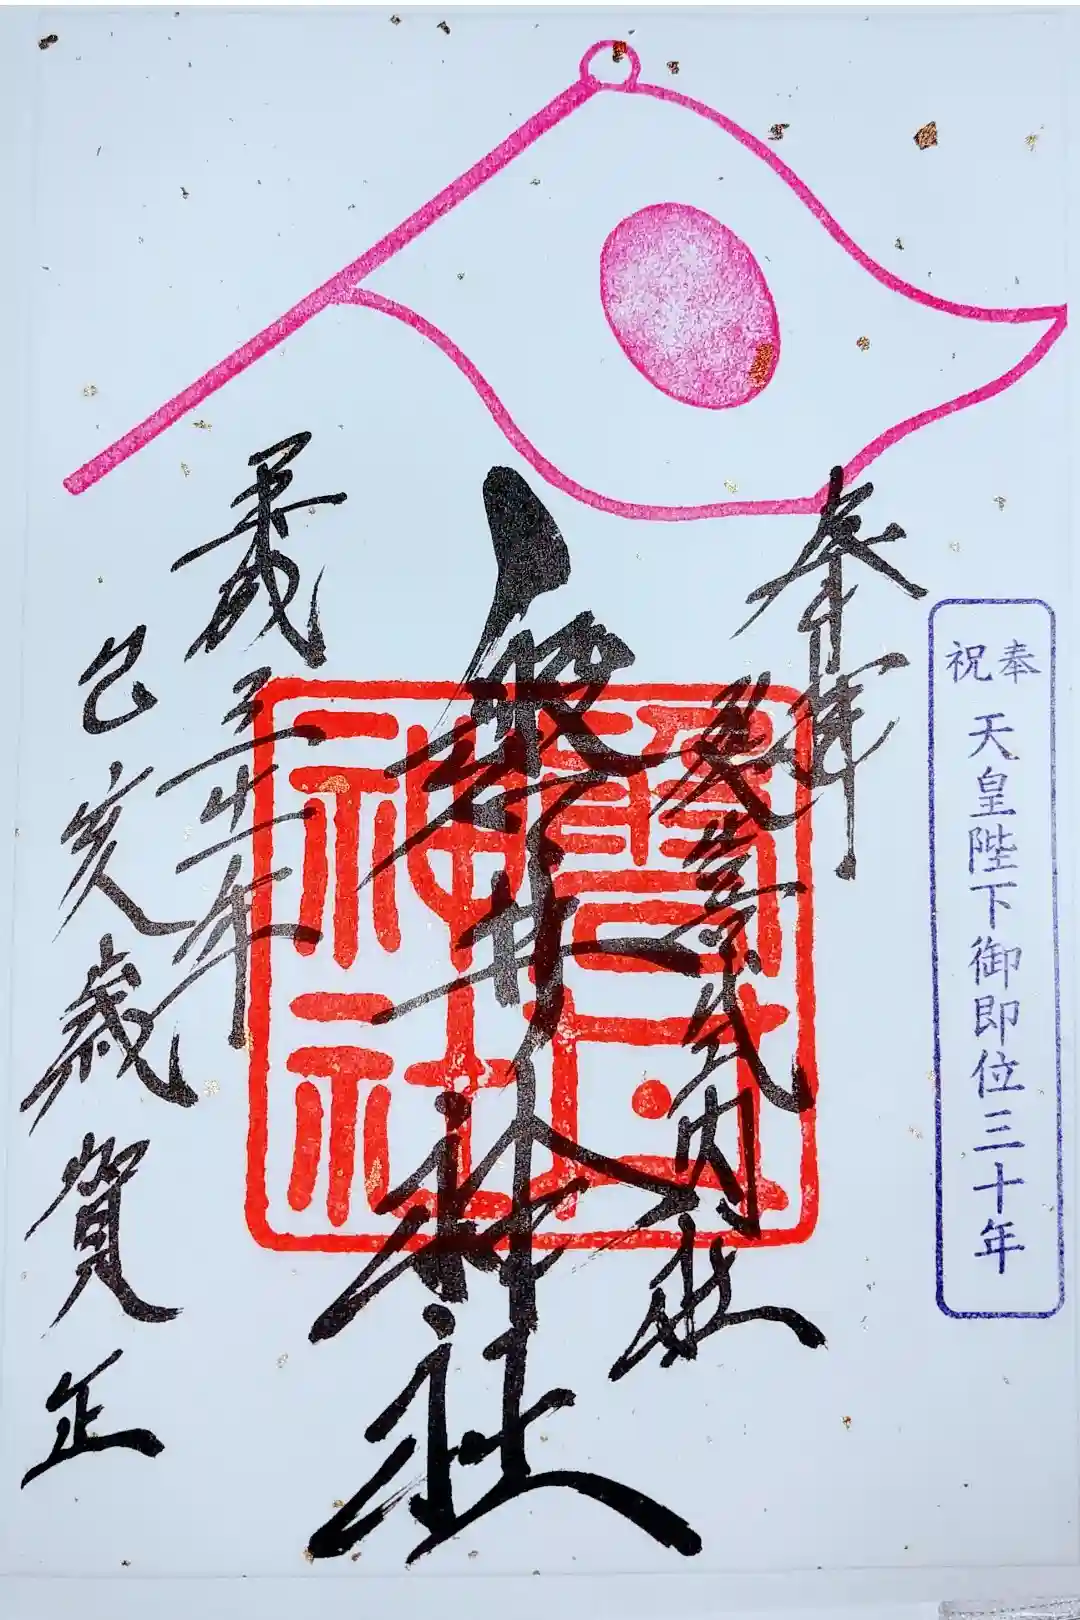 奉祝 天皇陛下御即位三十年
奉拝
延喜式内社
磐井神社
磐井
神社
平成三十一年
己亥歳賀正